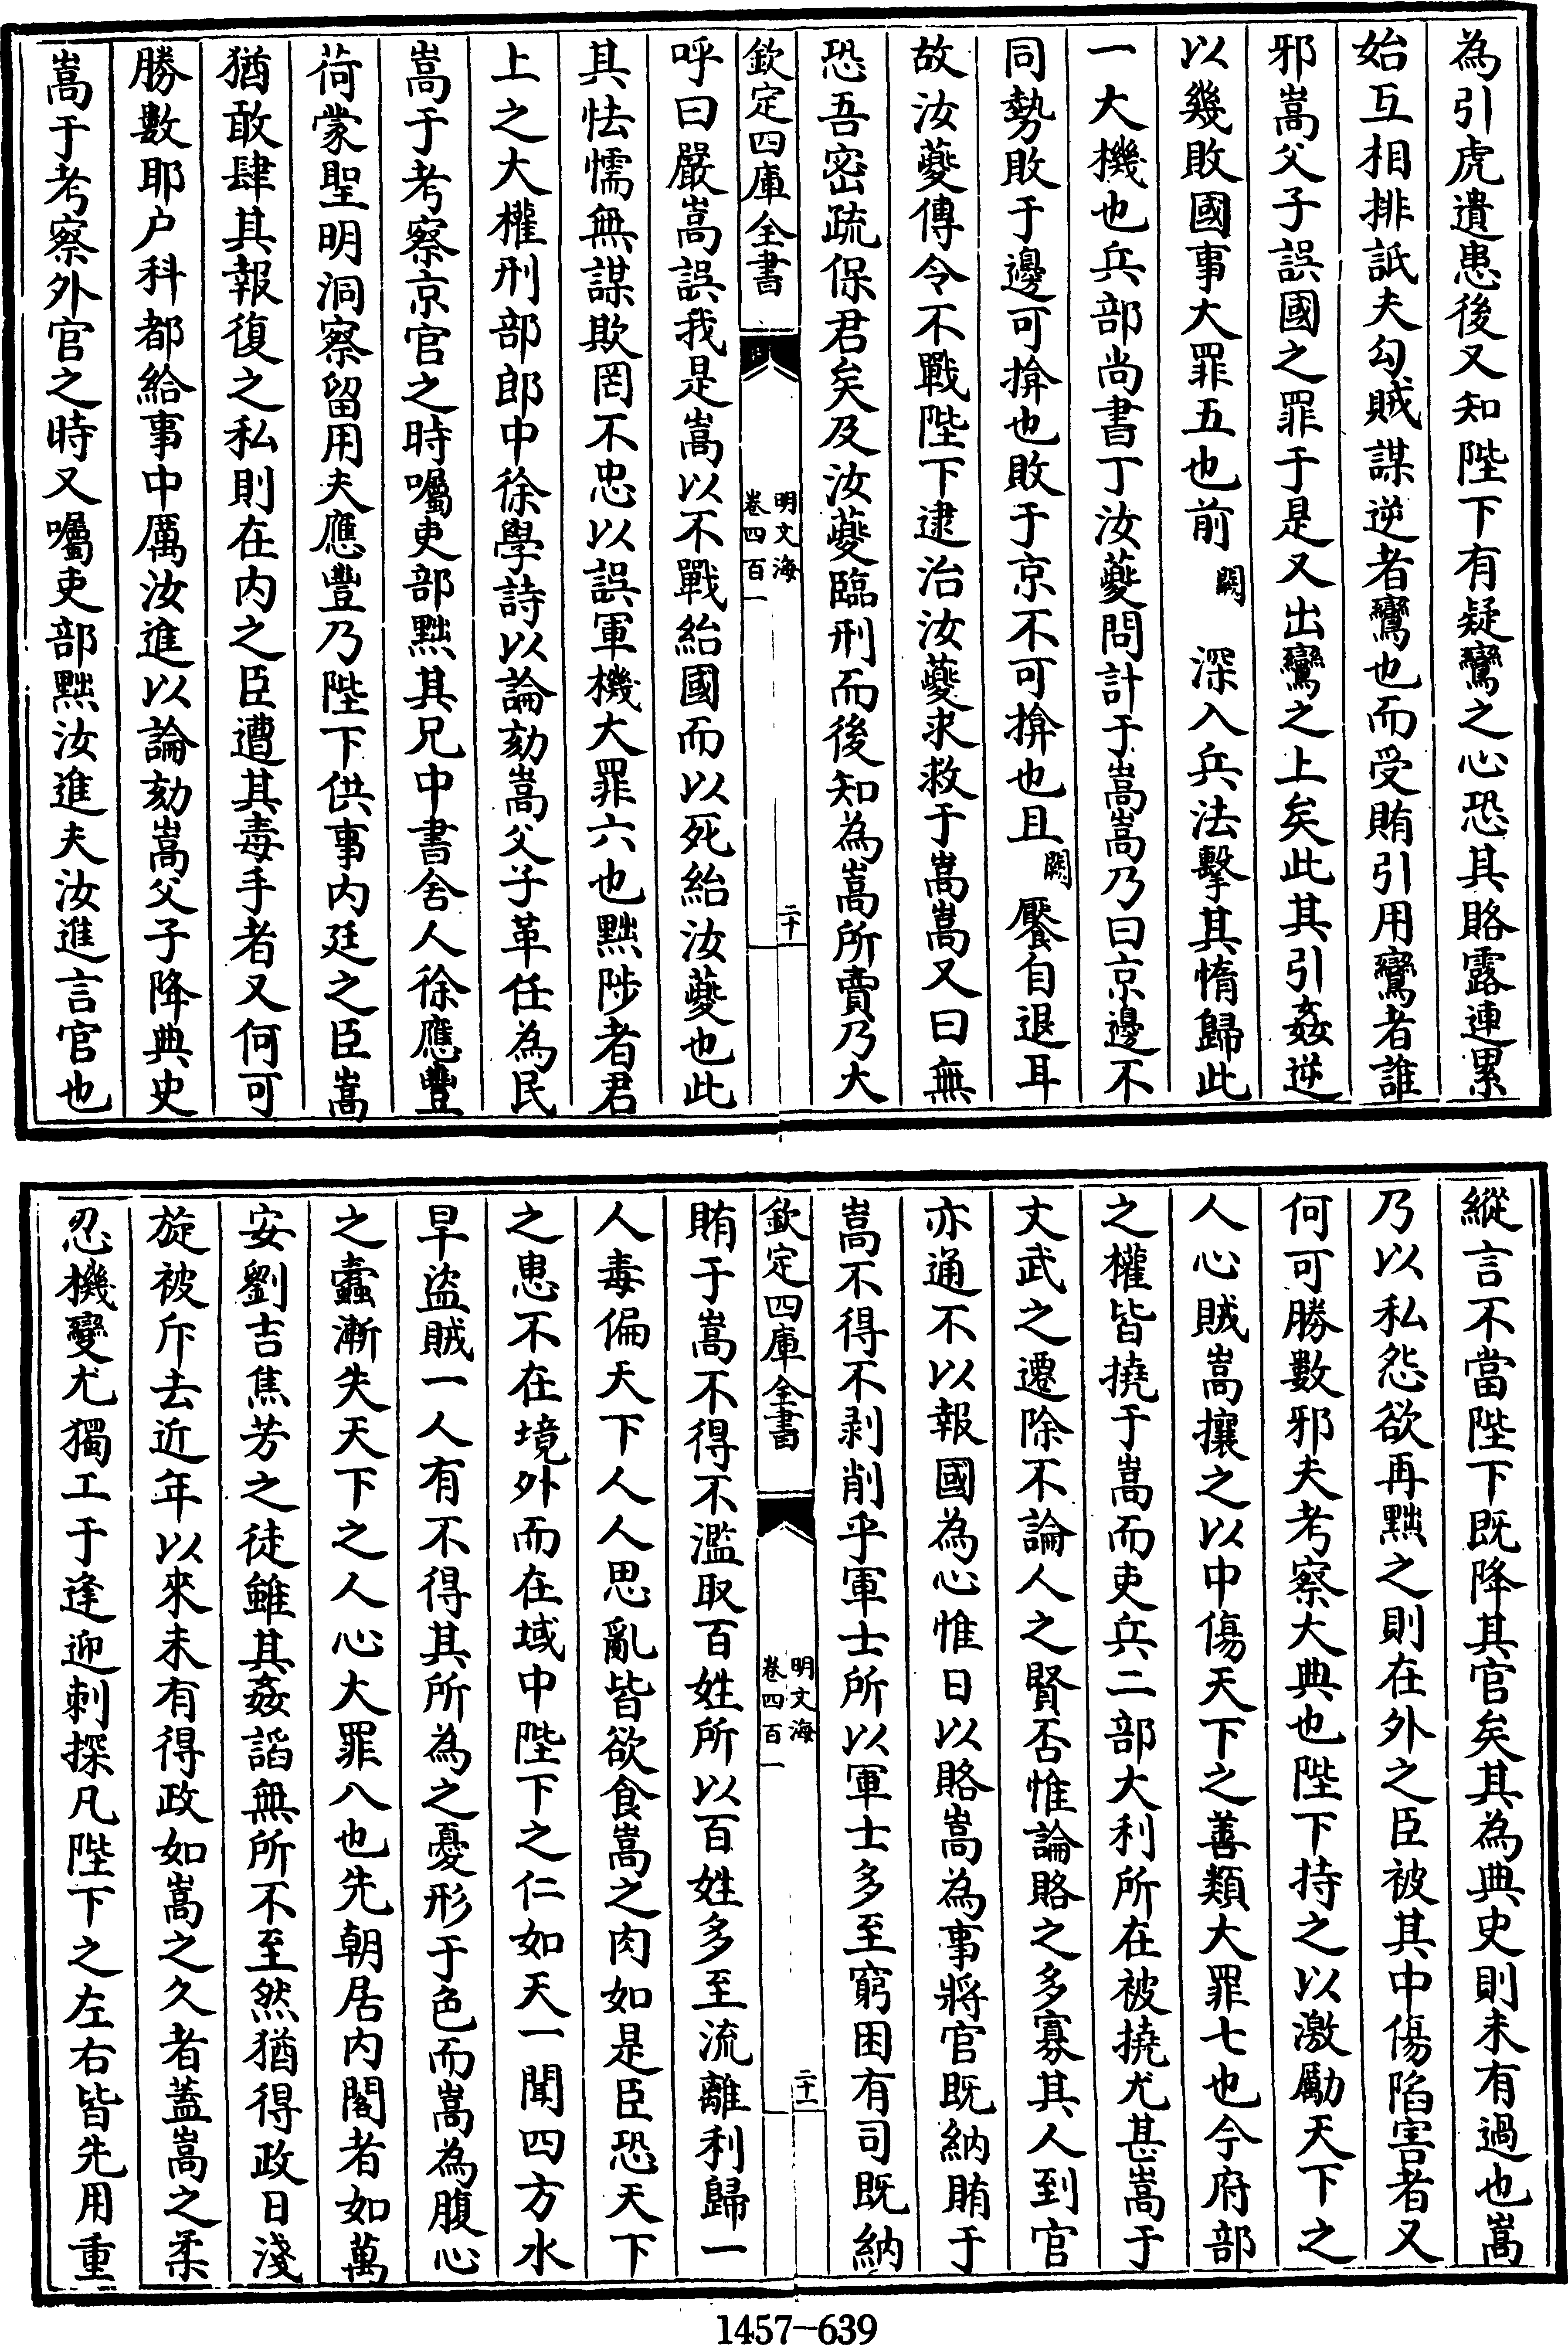 為引虎遺患後又知陛下有疑鸞之心恐其賂露連累
始互相排詆夫勾賊謀逆者鸞也而受賄引用鸞者誰
邪嵩父子誤國之罪于是又出鸞之上矣此其引姦逆
以幾敗國事大罪五也前闕深入兵法擊其惰歸此
一大機也兵部尚書丁汝夔問計于嵩嵩乃曰京邊不
同勢敗于邊可揜也敗于京不可揜也且闕饜自退耳
故汝夔傳令不戰陛下逮治汝夔求救于嵩嵩又曰無
恐吾密疏保君矣及汝夔臨刑而後知為嵩所賣乃大
欽定四庫全書
明文海
卷四百一
二十
呼曰嚴嵩誤我是嵩以不戰紿國而以死紿汝夔也此
其怯懦無謀欺罔不忠以誤軍機大罪六也黜陟者君
上之大權刑部郎中徐學詩以論劾嵩父子革任為民
嵩于考察京官之時囑吏部黜其兄中書舍人徐應豐
荷蒙聖明洞察留用夫應豐乃陛下供事內廷之臣嵩
猶敢肆其報復之私則在內之臣遭其毒手者又何可
勝數耶户科都給事中厲汝進以論劾嵩父子降典史
嵩于考察外官之時又囑吏部黜汝進夫汝進言官也
縱言不當陛下既降其官矣其為典史則未有過也嵩
乃以私怨欲再黜之則在外之臣被其中傷陷害者又
何可勝數邪夫考察大典也陛下持之以激勵天下之
人心賊嵩攘之以中傷天下之善類大罪七也今府部
之權皆撓于嵩而吏兵二部大利所在被撓尤甚嵩于
文武之遷除不論人之賢否惟論賂之多寡其人到官
亦通不以報國為心惟日以賂嵩為事將官既納賄于
嵩不得不剥削乎軍士所以軍士多至窮困有司既納
欽定四庫全書
明文海
卷四百一
二十一
賄于嵩不得不濫取百姓所以百姓多至流離利歸一
人毒偏天下人人思亂皆欲食嵩之肉如是臣恐天下
之患不在境外而在域中陛下之仁如天一聞四方水
旱盜賊一人有不得其所為之憂形于色而嵩為腹心
之蠹漸失天下之人心大罪八也先朝居內閣者如萬
安劉吉焦芳之徒雖其姦謟無所不至然猶得政日淺
旋被斥去近年以來未有得政如嵩之久者蓋嵩之柔
忍機變尤獨工于逢迎刺探凡陛下之左右皆先用重
1457-639